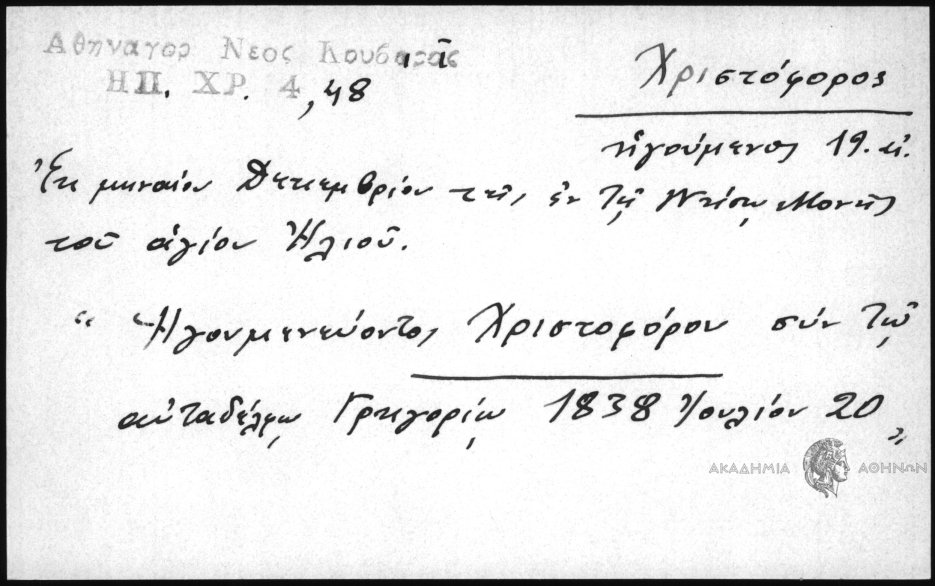 Αθηναγορ Νεος Κουβαρᾶς
ΗΠ. ΧΡ. 4, 48
Χριστόφορος
ἡγούμενος 19. αἰ.
Ἐκ μηναίου Δεκεμβρίου τῆς ἐν τῇ Νήσῳ Μονῆς
τοῦ ἁγίου Ἠλιοῦ.
“ Ἡγουμενεύοντος Χριστοφόρου σύν τῷ
αὐταδέλφῳ Γρηγορίῳ 1838 Ἰουλίου 20 ”
ΑΚΑΔΗΜΙΑ ΑΘΗΝΩΝ